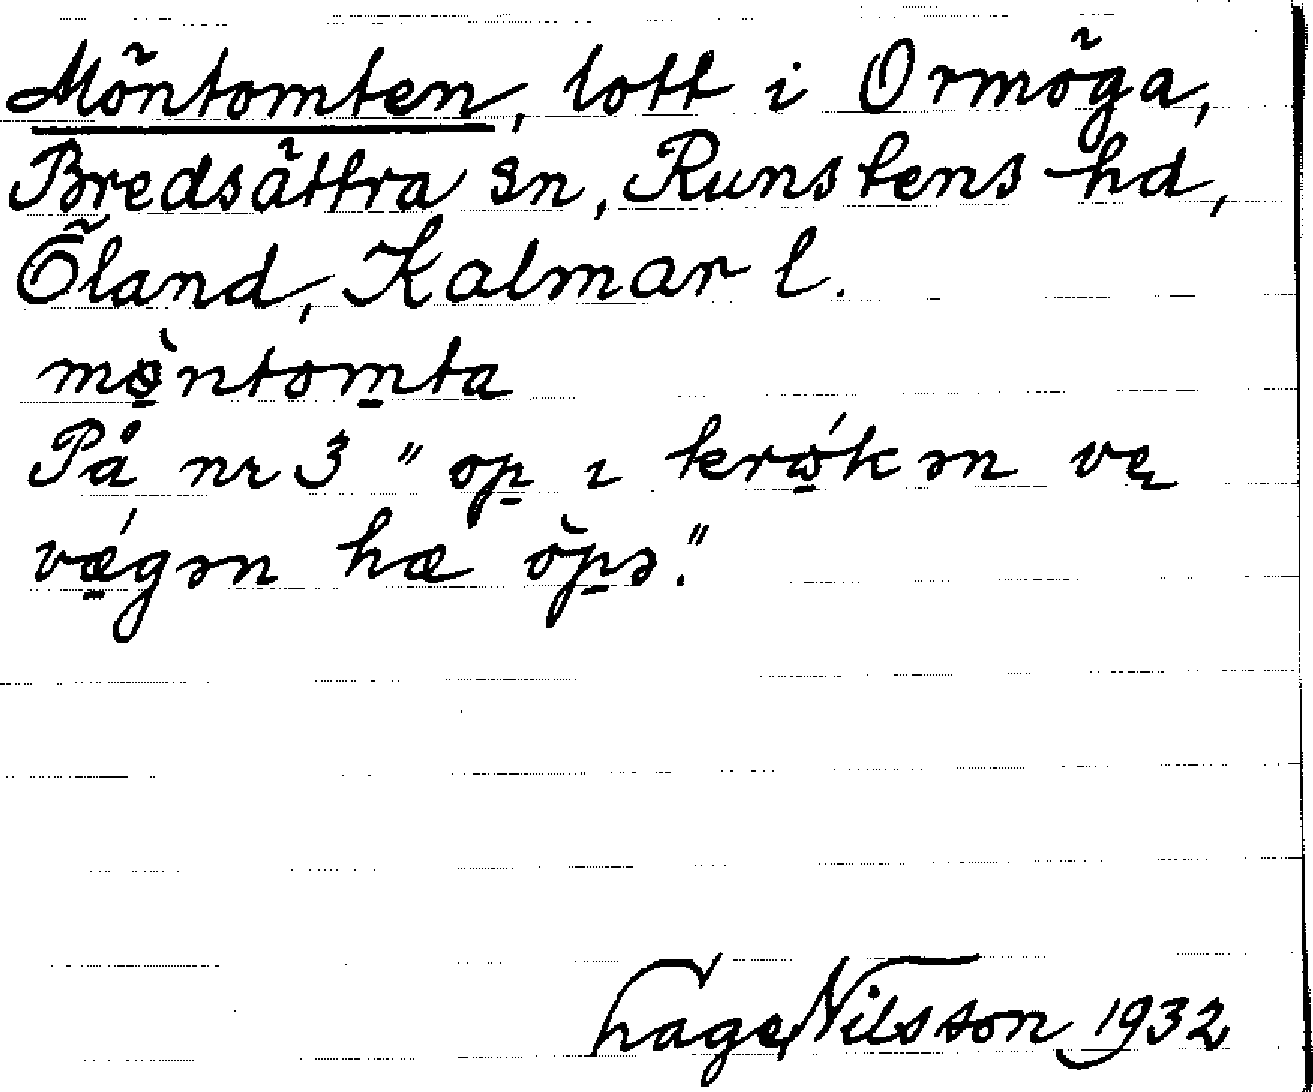 Möntomten, lott i Ormöga,
Bredsättra sn, Runstens hd,
Öland, Kalmar l.
mø̀ntomta
På nr 3 "op ı krǿkən vę
vǽgən hæ òpə."
Hage Nilsson 1932